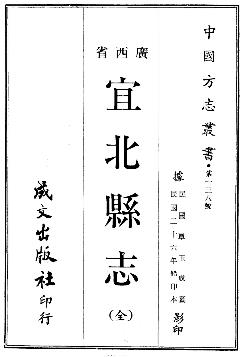 中國方志叢書·第一三六號
據民國覃玉成纂
民國二十六年鉛印本影印
廣西省
宜北縣志
(全)
成文出版社印行